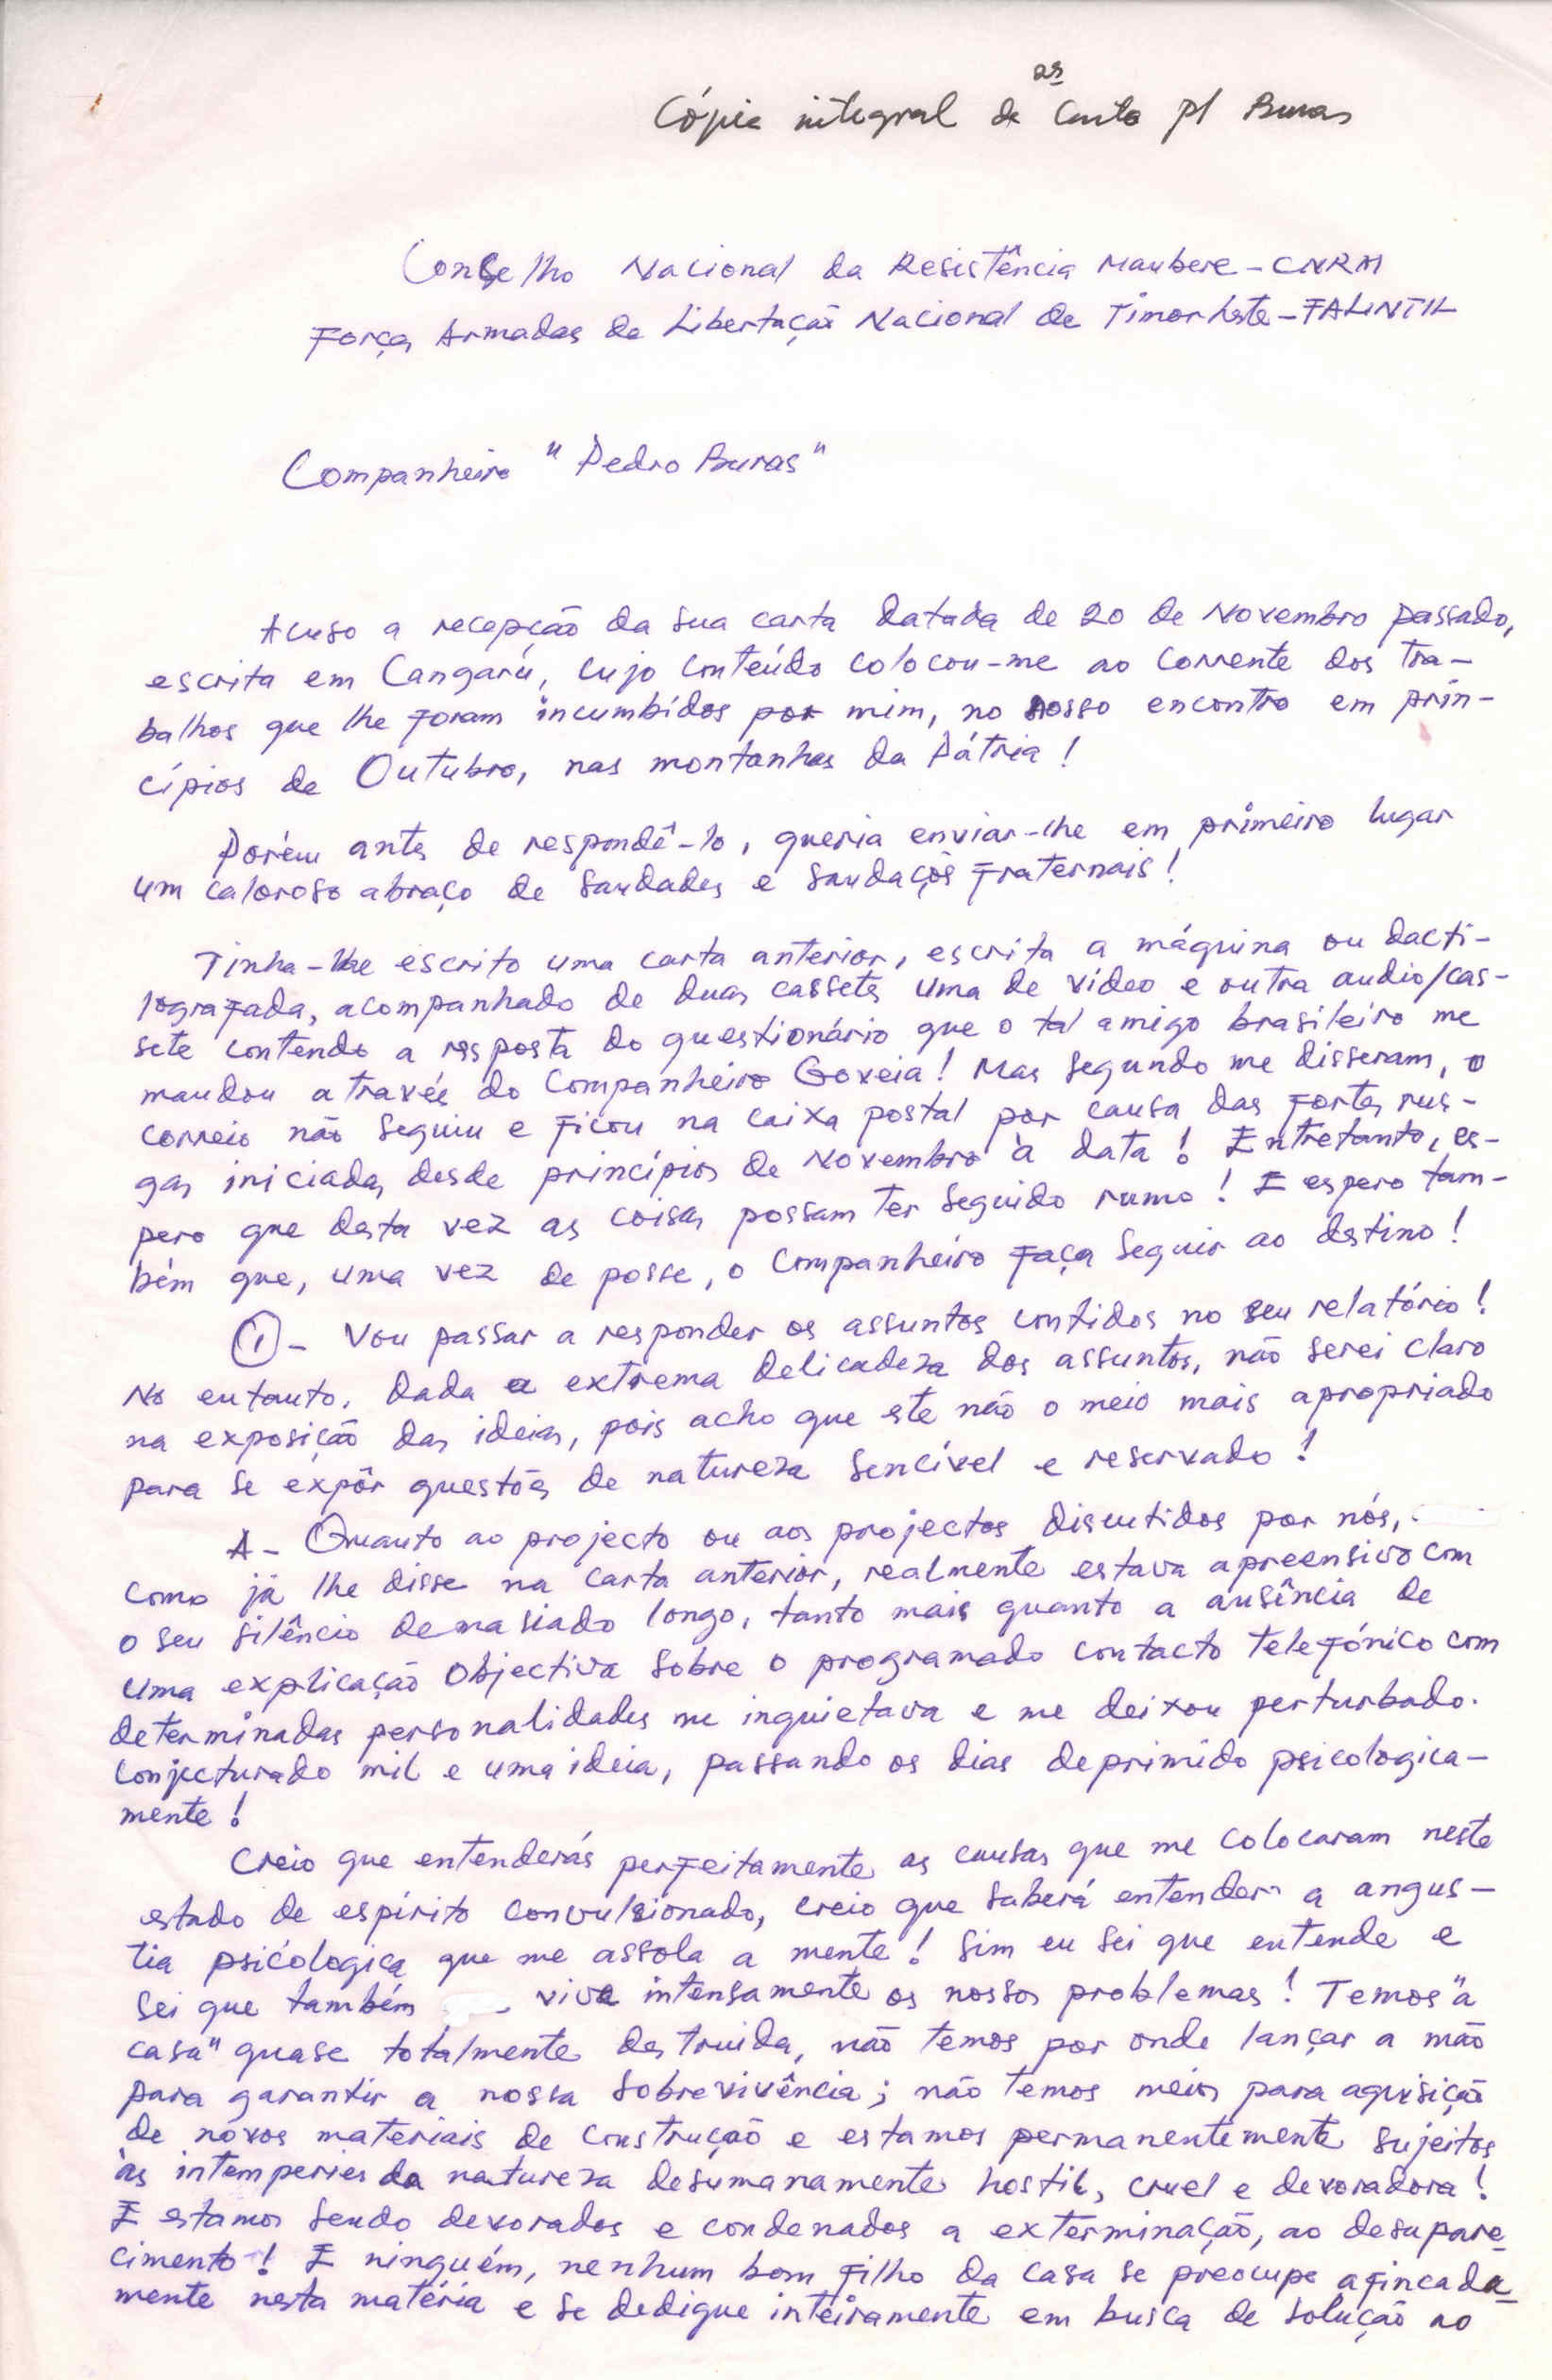 Cópia integral da 2ª Carta p/ Buras
Conselho Nacional da Resistência Maubere - CNRM
Força Armadas de Libertação Nacional de Timor Leste - FALINTIL
Companheiro "Pedro Buras"
Acuso a recepção da sua carta datada de 20 de Novembro passado,
escrita em Cangarú, cujo conteúdo colocou-me ao corrente dos tra-
balhos que lhe foram incumbidos por mim, no nosso encontro em prin-
cípios de Outubro, nas montanhas da Pátria!
Porém antes de respondê-lo, queria enviar-lhe em primeiro lugar
um caloroso abraço de saudades e saudações fraternais!
Tinha-lhe escrito uma carta anterior, escrita a máquina ou dacti-
lografada, acompanhado de duas cassetes uma de vídeo e outra audio/cas-
sete contendo a resposta do questionário que o tal amigo brasileiro me
mandou através do Companheiro Goveia! Mas segundo me disseram, o
correio não seguiu e ficou na caixa postal por causa das fortes rus-
gas iniciadas desde princípios de Novembro à data! Entretanto, es-
pero que desta vez as coisas possam ter seguido rumo! E espero tam-
bém que, uma vez de posse, o Companheiro faça seguir ao destino!
① - Vou passar a responder os assuntos contidos no seu relatório!
No entanto, dada a extrema delicadeza dos assuntos, não serei claro
na exposição das ideias, pois acho que este não o meio mais apropriado
para se expôr questões de natureza sencível e reservado!
A - Quanto ao projecto ou aos projectos discutidos por nós,
como já lhe disse na carta anterior, realmente estava apreensivo com
o seu silêncio demasiado longo, tanto mais quanto a ausência de
uma explicação objectiva sobre o programado contacto telefónico com
determinadas personalidades me inquietava e me deixou perturbado.
Conjecturado mil e uma ideia, passando os dias deprimido psicologica-
mente!
Creio que entenderás perfeitamente as causas que me colocaram neste
estado de espírito convulsionado, creio que saberá entender a angus-
tia psicólogica que me assola a mente! Sim eu sei que entende e
sei que também vive intensamente os nossos problemas! Temos "a
casa" quase totalmente destruida, não temos por onde lançar a mão
para garantir a nossa sobrevivência; não temos meios para aquisição
de novos materiais de construção e estamos permanentemente sujeitos
às intemperies da natureza desumanamente hostil, cruel e devoradora!
E estamos sendo devorados e condenados a exterminação, ao desapare
cimento! E ninguém, nenhum bom filho da casa se preocupe afincada
mente nesta matéria e se dedique inteiramente em busca de solução ao